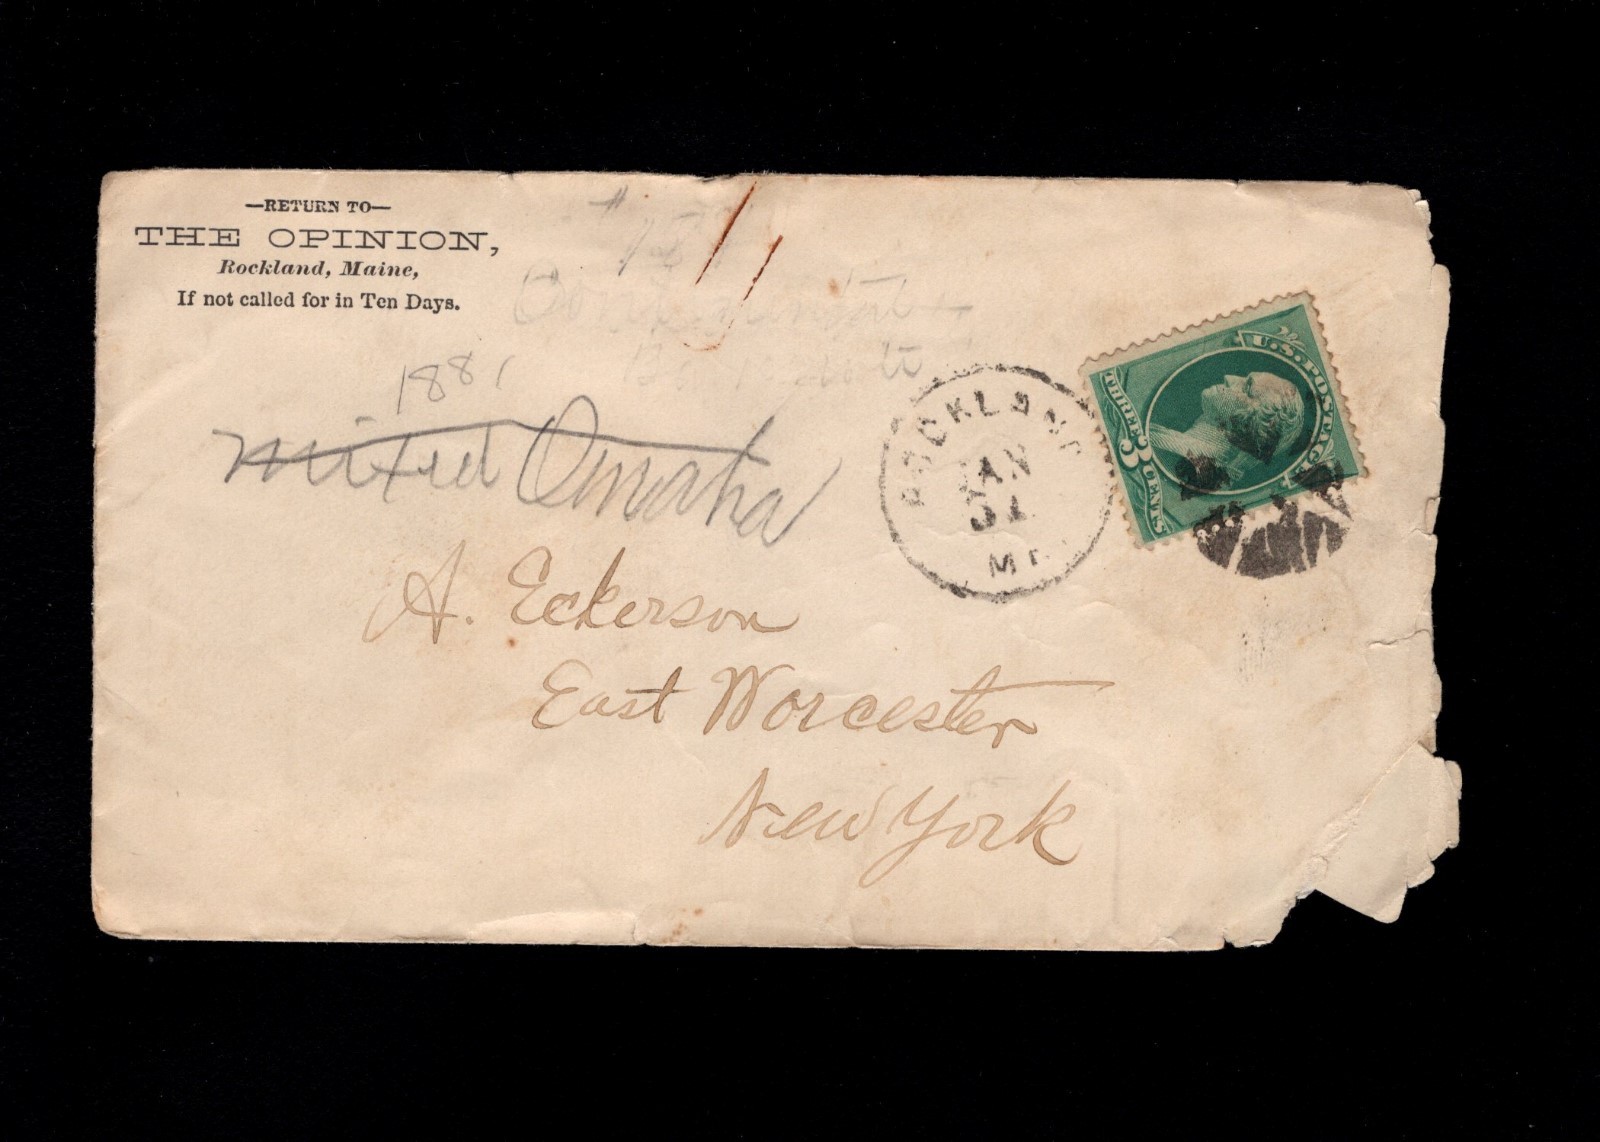 —RETURN TO—
THE OPINION,
Rockland, Maine,
If not called for in Ten Days.
1881
mixed Omaha
ROCKLAND
JAN
31
ME.
U.S. POSTAGE
THREE 3 CENTS
A. Eckerson
East Worcester
New York